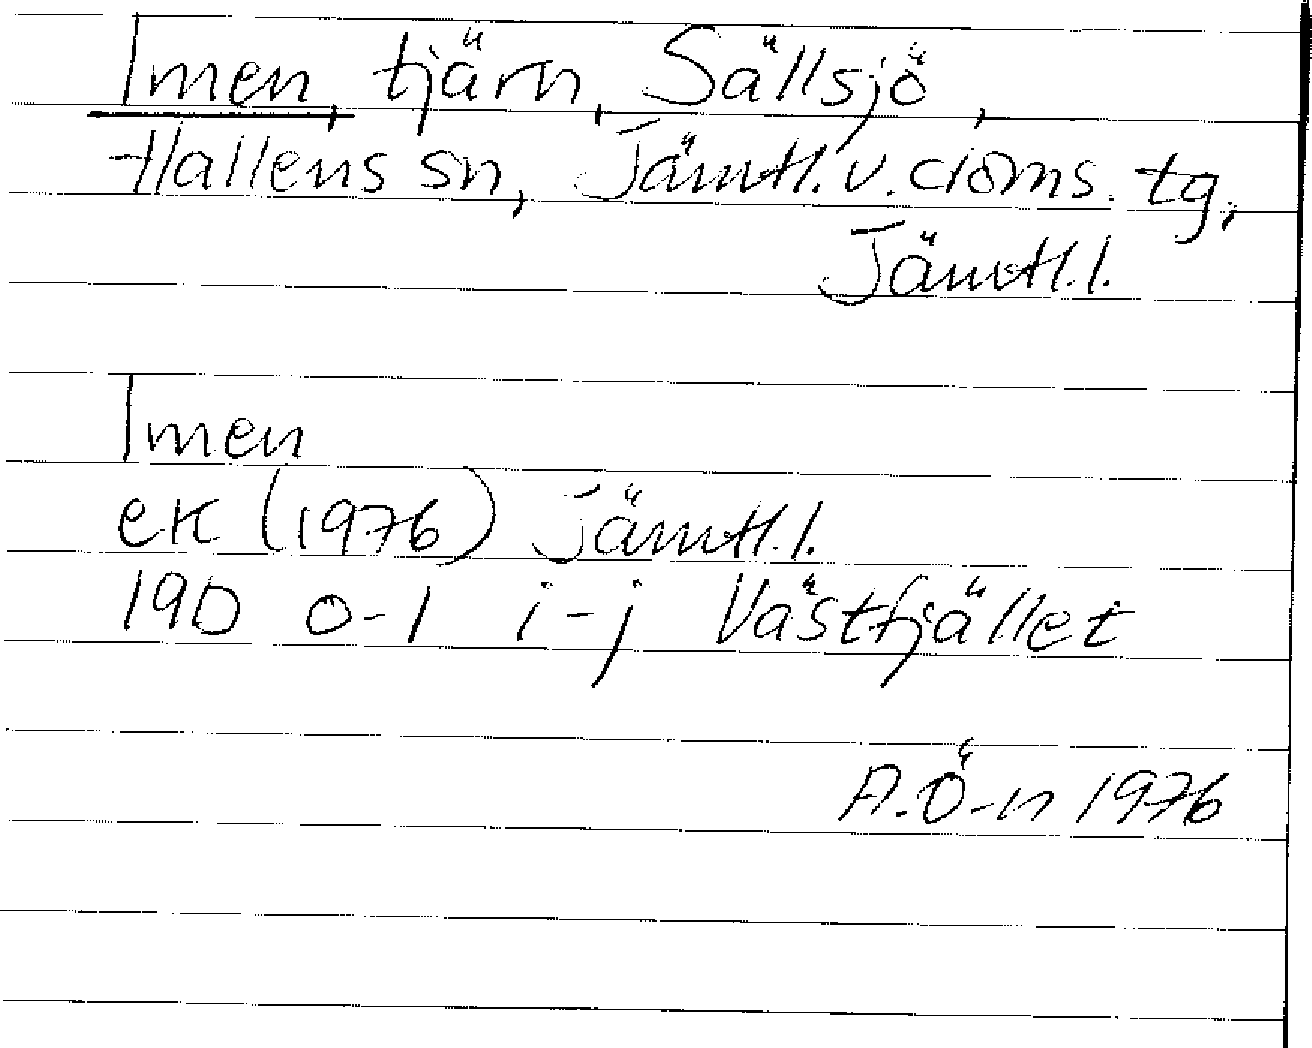 Imen, tjärn, Sällsjö,
Hallens sn, Jämtl. v. doms. tg,
Jämtl. l.
Imen
ek (1976) Jämtl. l.
19D 0-1 i-j Västfjället
A.Ö-n 1976